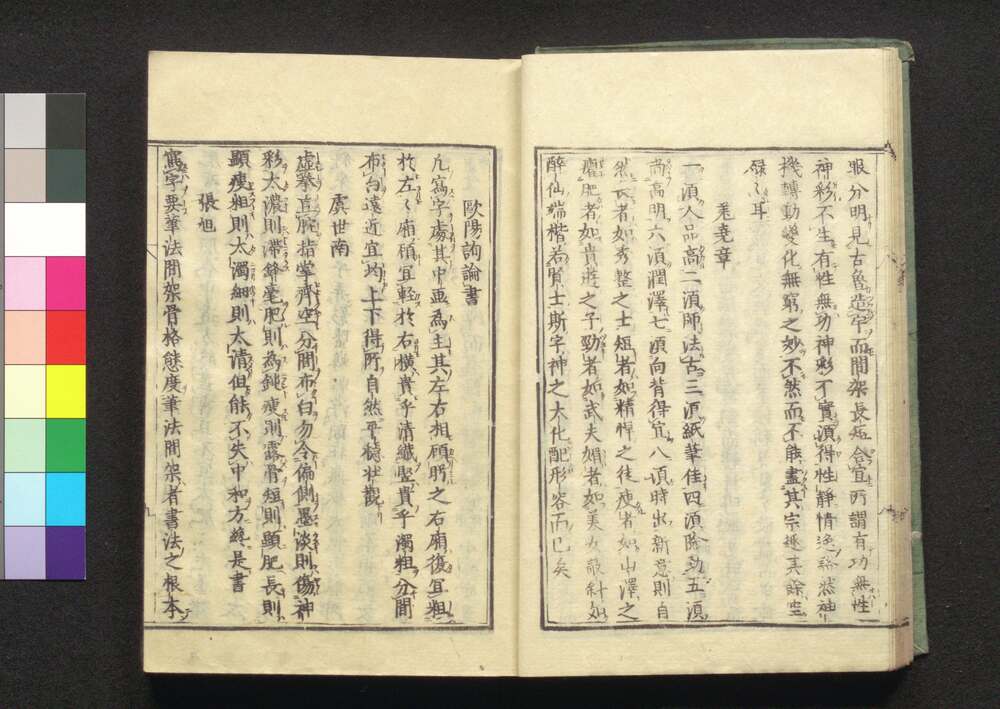 眼分明見古魯造宇而間架長短合宜所謂有功無性
神彩不生有性無功神彩不實須得性靜情逸豁然神
機轉動變化無窮之妙不然而不能盡其宗趣美餘空
碌々耳
姜堯章
一須人品高二須師法古三須紙筆佳四須險勁五須
尚高明六須潤澤七須向背得宜八須時出新意則自
然長者如秀整之士短者如精悍之徒瘦者如山澤之
癯肥者如貴遊之子勁者如武夫媚者如美女欹斜如
醉仙端楷若賢士斯字神之大化配形容而已矣
歐陽詢論書
凡寫字處其中画為主其左右相顧眄之右廂復宜粗
於左々廂稍宜輕於右橫貴乎清纖豎貴乎濁粗分間
布白遠近宜均上下得所自然平穩壯觀
虞世南
虛拳直腕指掌齊空分間布白勿令偏側墨淡則傷神
彩太濃則滯鋒毫肥則為鈍瘦則露骨短則顕肥長則
顯瘦粗則太濁細則太清但能不失中和方終是書
張旭
寫字要筆法間架骨格態度筆法間架者書法之根本